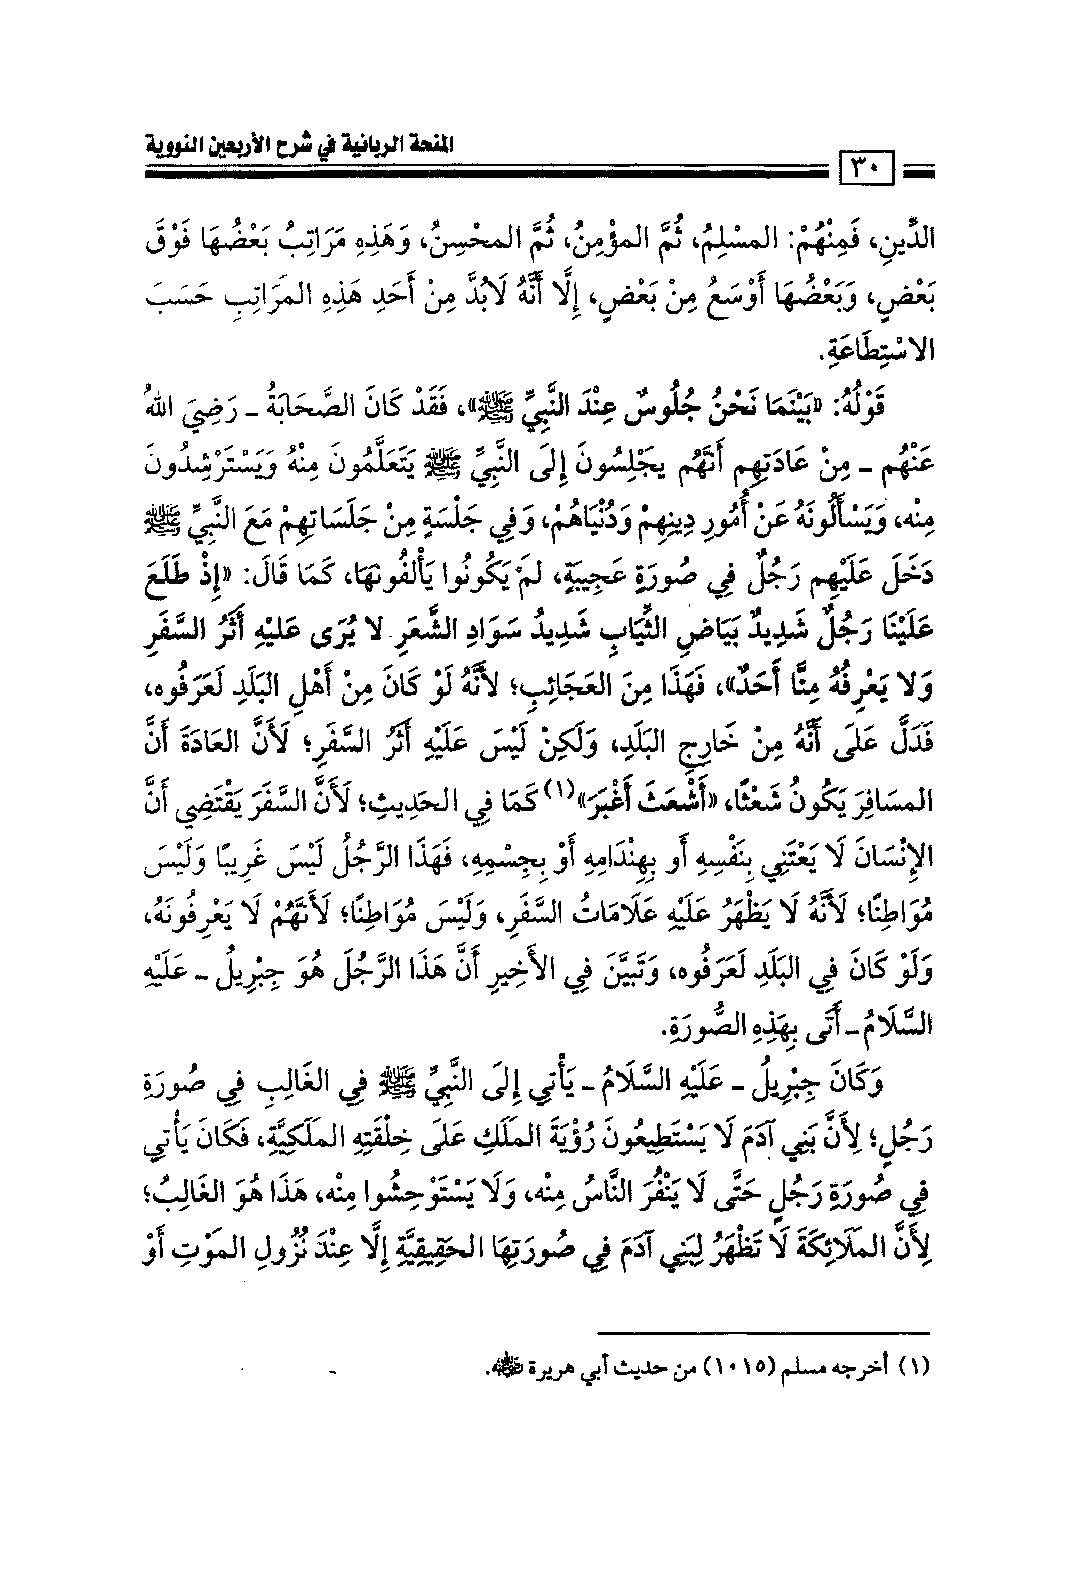 المنحة الربانية في شرح الأربعين النووية
٣٠
الدِّينِ، فَمِنْهُمْ: المسْلِمُ، ثُمَّ المؤْمِنُ، ثُمَّ المحْسِنُ، وَهَذِهِ مَرَاتِبُ بَعْضُهَا فَوْقَ
بَعْضٍ، وَبَعْضُهَا أَوْسَعُ مِنْ بَعْضٍ، إِلَّا أَنَّهُ لَابُدَّ مِنْ أَحَدِ هَذِهِ المَرَاتِبِ حَسَبَ
الاسْتِطَاعَةِ.
قَوْلُهُ: «بَيْنَمَا نَحْنُ جُلُوسٌ عِنْدَ النَّبِيِّ ﷺ»، فَقَدْ كَانَ الصَّحَابَةُ ـ رَضِيَ اللهُ
عَنْهُم ـ مِنْ عَادَتِهِم أَنَّهُم يَجْلِسُونَ إِلَى النَّبِيِّ ﷺ يَتَعَلَّمُونَ مِنْهُ وَيَسْتَرْشِدُونَ
مِنْه، وَيَسْأَلُونَهُ عَنْ أُمُورِ دِينِهِمْ وَدُنْيَاهُمْ، وَفِي جَلْسَةٍ مِنْ جَلَسَاتِهِمْ مَعَ النَّبِيِّ ﷺ
دَخَلَ عَلَيْهِم رَجُلٌ فِي صُورَةٍ عَجِيبَةٍ، لَمْ يَكُونُوا يَأْلَفُونَهَا، كَمَا قَالَ: «إِذْ طَلَعَ
عَلَيْنَا رَجُلٌ شَدِيدُ بَيَاضِ الثِّيَابِ شَدِيدُ سَوَادِ الشَّعَرِ لا يُرَى عَلَيْهِ أَثَرُ السَّفَرِ
وَلا يَعْرِفُهُ مِنَّا أَحَدٌ»، فَهَذَا مِنَ العَجَائِبِ؛ لأَنَّهُ لَوْ كَانَ مِنْ أَهْلِ البَلَدِ لَعَرَفُوه،
فَدَلَّ عَلَى أَنَّهُ مِنْ خَارِجِ البَلَدِ، وَلَكِنْ لَيْسَ عَلَيْهِ أَثَرُ السَّفَرِ؛ لَأَنَّ العَادَةَ أَنَّ
المسَافِرَ يَكُونُ شَعْثًا، «أَشْعَثَ أَغْبَرَ»(١) كَمَا فِي الحَدِيثِ؛ لَأَنَّ السَّفَرَ يَقْتَضِي أَنَّ
الإِنْسَانَ لَا يَعْتَنِي بِنَفْسِهِ أو بِهِنْدَامِهِ أَوْ بِجِسْمِهِ، فَهَذَا الرَّجُلُ لَيْسَ غَرِيبًا وَلَيْسَ
مُوَاطِنًا؛ لَأَنَّهُ لَا يَظْهَرُ عَلَيْهِ عَلَامَاتُ السَّفَرِ، وَلَيْسَ مُوَاطِنًا؛ لَأَنَّهُمْ لَا يَعْرِفُونَهُ،
وَلَوْ كَانَ فِي البَلَدِ لَعَرَفُوه، وَتَبَيَّنَ فِي الأَخِيرِ أَنَّ هَذَا الرَّجُلَ هُوَ جِبْرِيلُ ـ عَلَيْهِ
السَّلَامُ ـ أَتَى بِهَذِهِ الصُّورَةِ.
وَكَانَ جِبْرِيلُ ـ عَلَيْهِ السَّلَامُ ـ يَأْتِي إِلَى النَّبِيِّ ﷺ فِي الغَالِبِ فِي صُورَةِ
رَجُلٍ؛ لِأَنَّ بَنِي آدَمَ لَا يَسْتَطِيعُونَ رُؤْيَةَ المَلَكِ عَلَى خِلْقَتِهِ المَلَكِيَّةِ، فَكَانَ يَأْتِي
فِي صُورَةِ رَجُلٍ حَتَّى لَا يَنْفُرَ النَّاسُ مِنْه، وَلَا يَسْتَوْحِشُوا مِنْه، هَذَا هُوَ الغَالِبُ؛
لِأَنَّ المَلَائِكَةَ لَا تَظْهَرُ لِبَنِي آدَمَ فِي صُورَتِهَا الحَقِيقِيَّةِ إِلَّا عِنْدَ نُزُولِ المَوْتِ أَوْ
(١) أخرجه مسلم (١٠١٥) من حديث أبي هريرة رضي الله عنه.